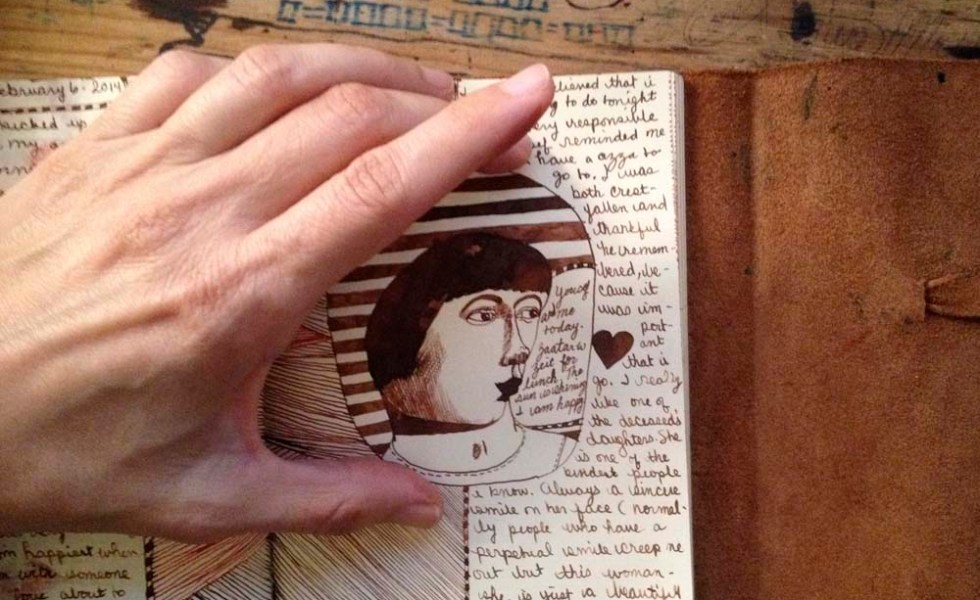 February 6-2014
kucked up
my
lieved that i
g to do tonight
ery responsible
reminded me
have a azza to
go to. I was
both crest-
fallen and
thankful
he remem-
bered, be-
cause it
was im-
port-
ant
that i
go. I really
like one of
the deceased's
daughters. She
is one of the
kindest people
i know. Always a sincere
smile on her face (normal-
ly people who have a
perpetual smile creep me
out but this woman-
she is just a beautiful
young
time
today.
zaatar w
zeit for
lunch. The
sun is shining
I am happy
m happiest when
with someone
love about to